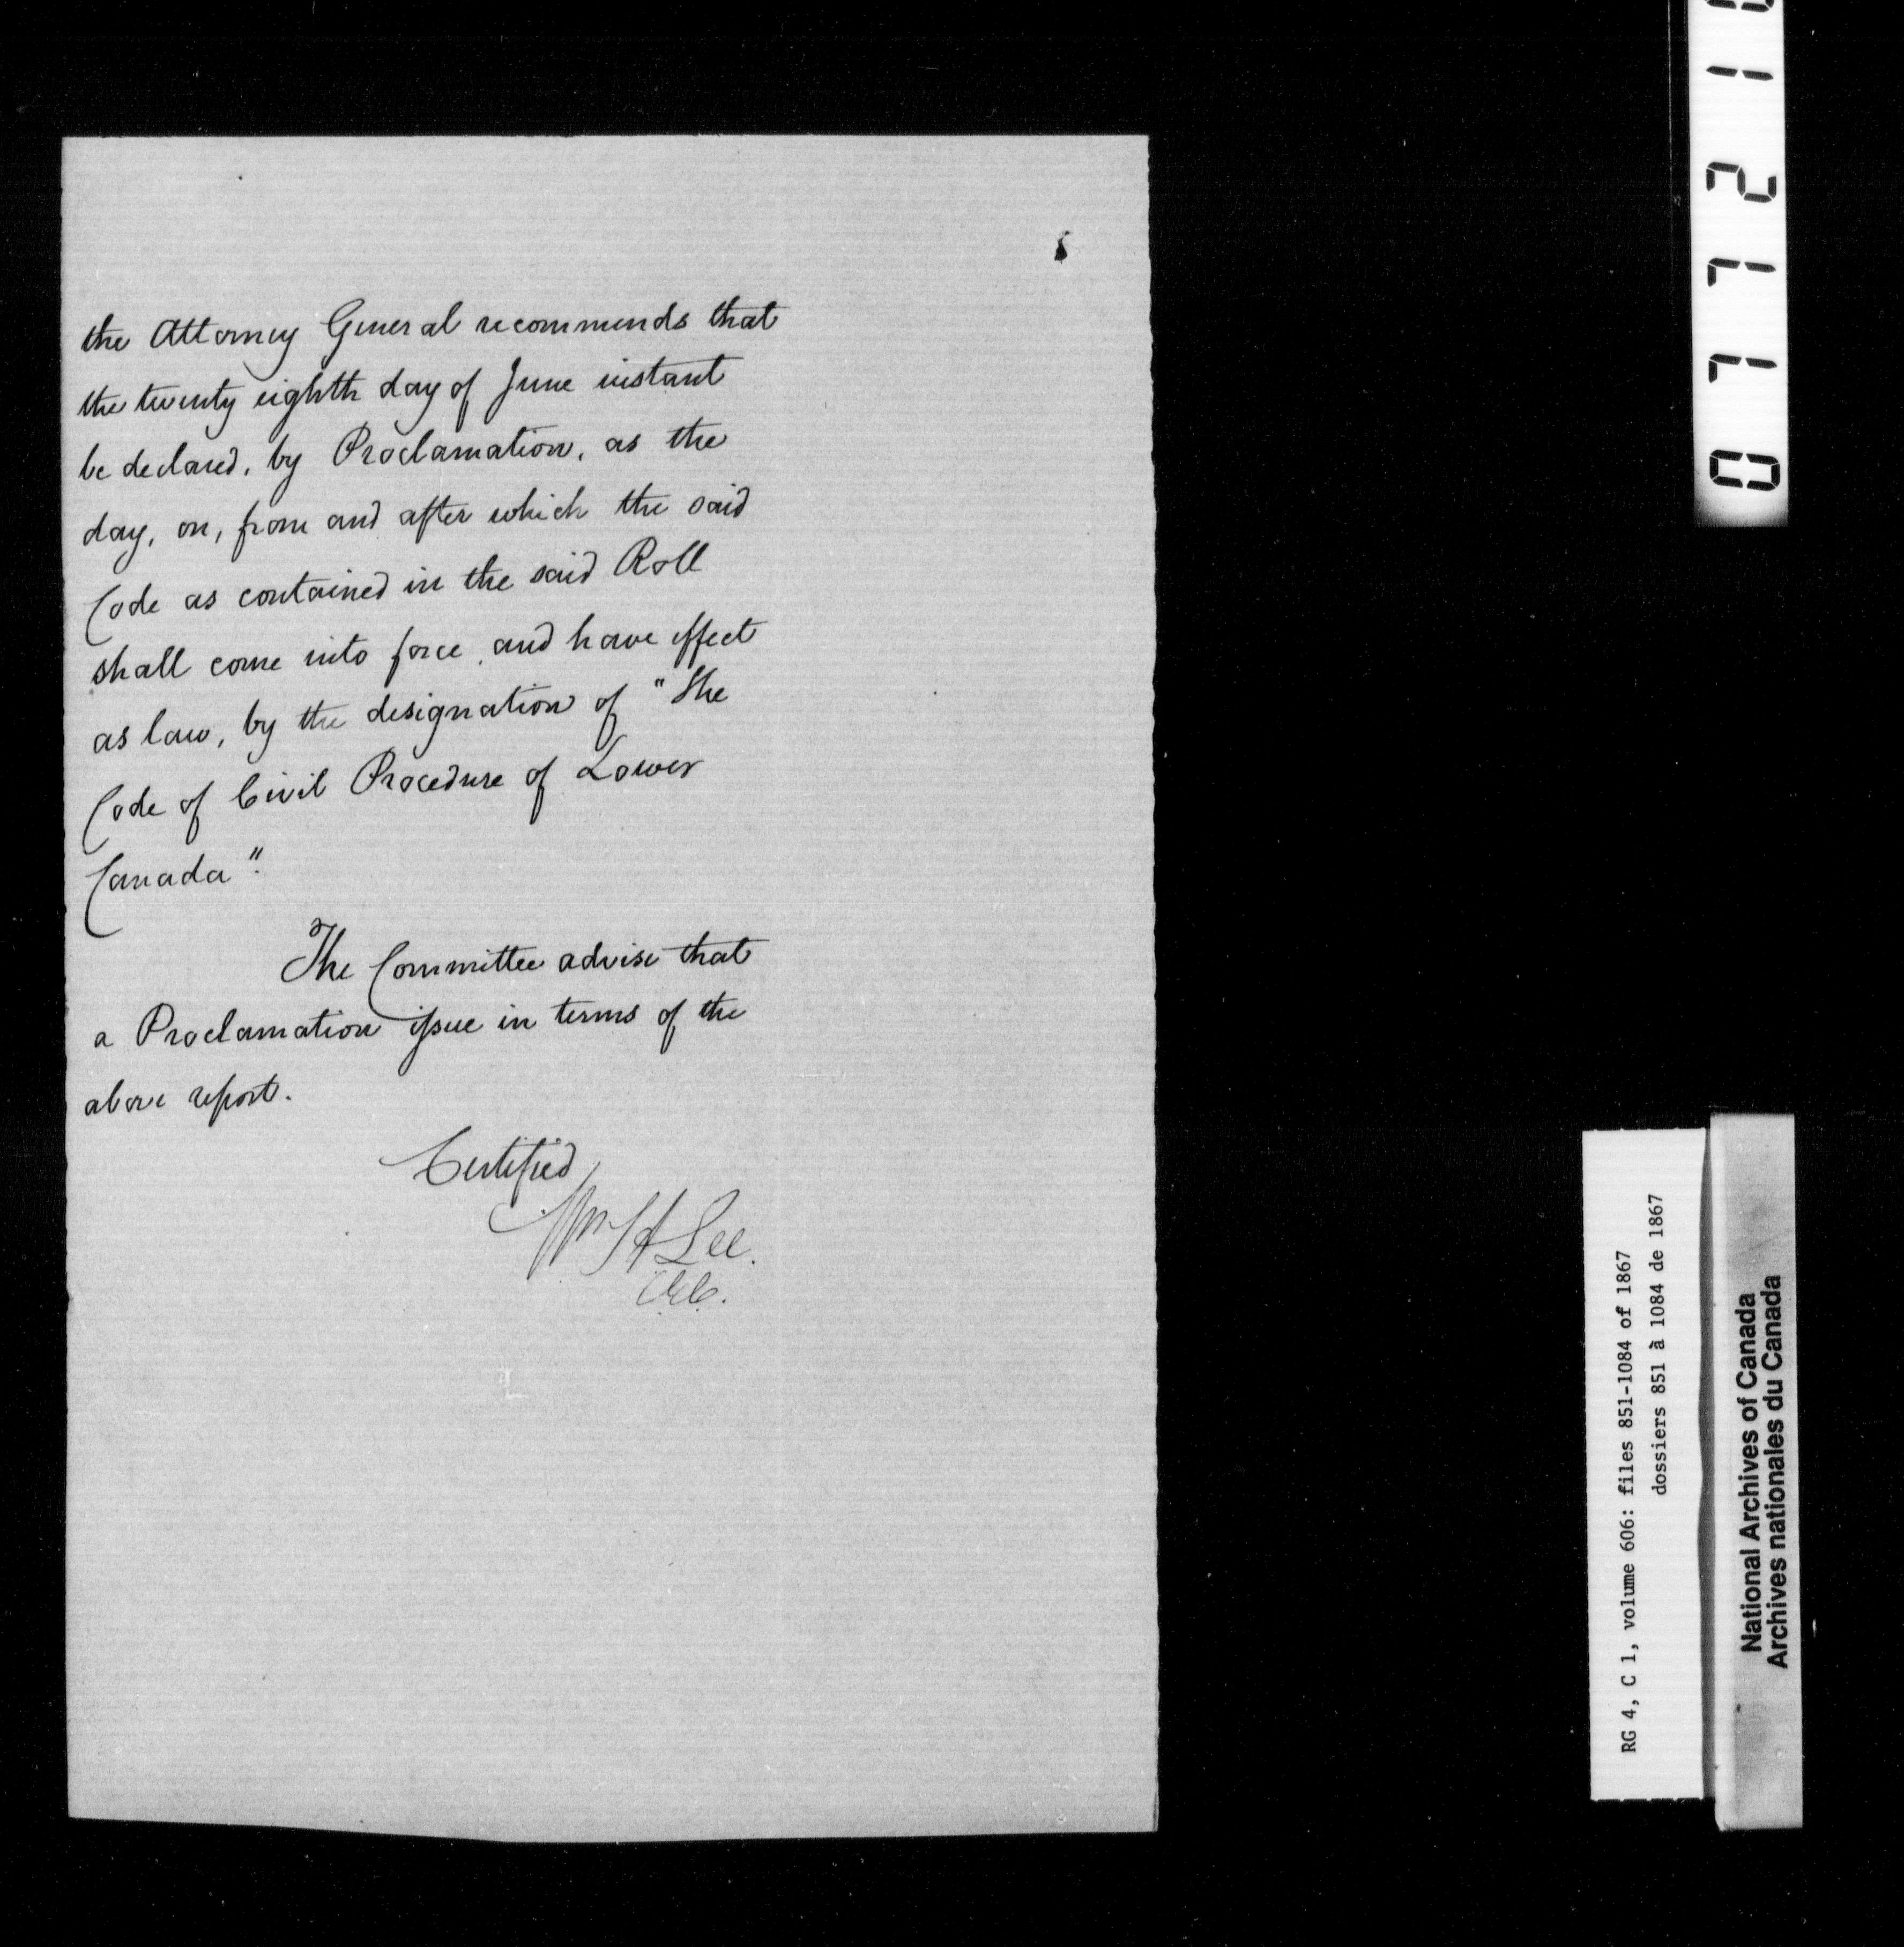 the Attorney General recommends that
the twenty eighth day of June instant
be declared, by Proclamation, as the
day, on, from and after which the said
Code as contained in the said Roll
shall come into force, and have effect
as law, by the designation of "The
Code of Civil Procedure of Lower
Canada".
The Committee advise that
a Proclamation issue in terms of the
above report.
Certified
Wm H Lee.
C.E.C.
RG 4, C 1, volume 606: files 851-1084 of 1867
dossiers 851 à 1084 de 1867
National Archives of Canada
Archives nationales du Canada